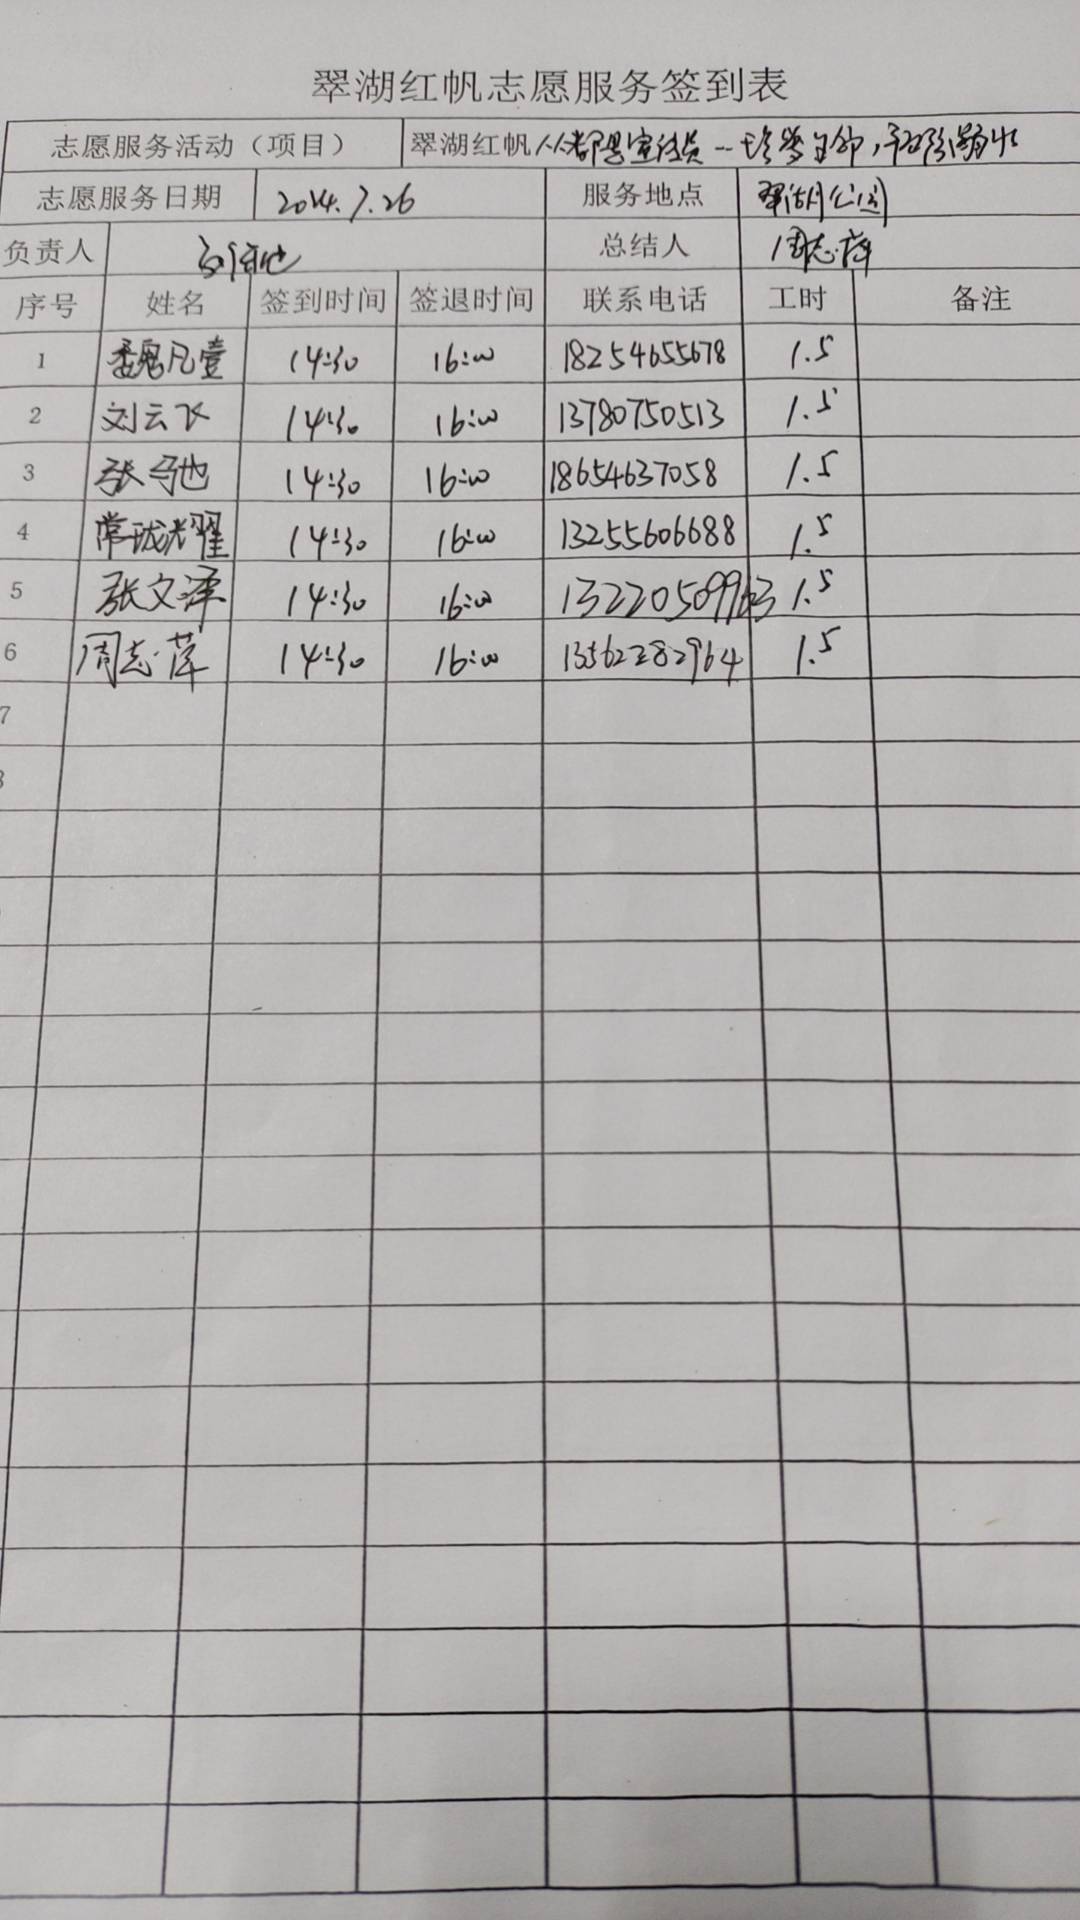 翠湖红帆志愿服务签到表
志愿服务活动（项目） 翠湖红帆人人都是宣传员--珍爱生命，
志愿服务日期 2024.7.26 服务地点 翠湖公园
负责人 总结人 周志萍
序号 姓名 签到时间 签退时间 联系电话 工时 备注
1 魏凡壹 14:30 16:00 18254655678 1.5
2 刘云飞 14:30 16:00 13780750513 1.5
3 张弓也 14:30 16:00 18654637058 1.5
4 常珑光耀 14:30 16:00 13255606688 1.5
5 张文泽 14:30 16:00 13220509963 1.5
6 周志萍 14:30 16:00 13562282964 1.5
7
8